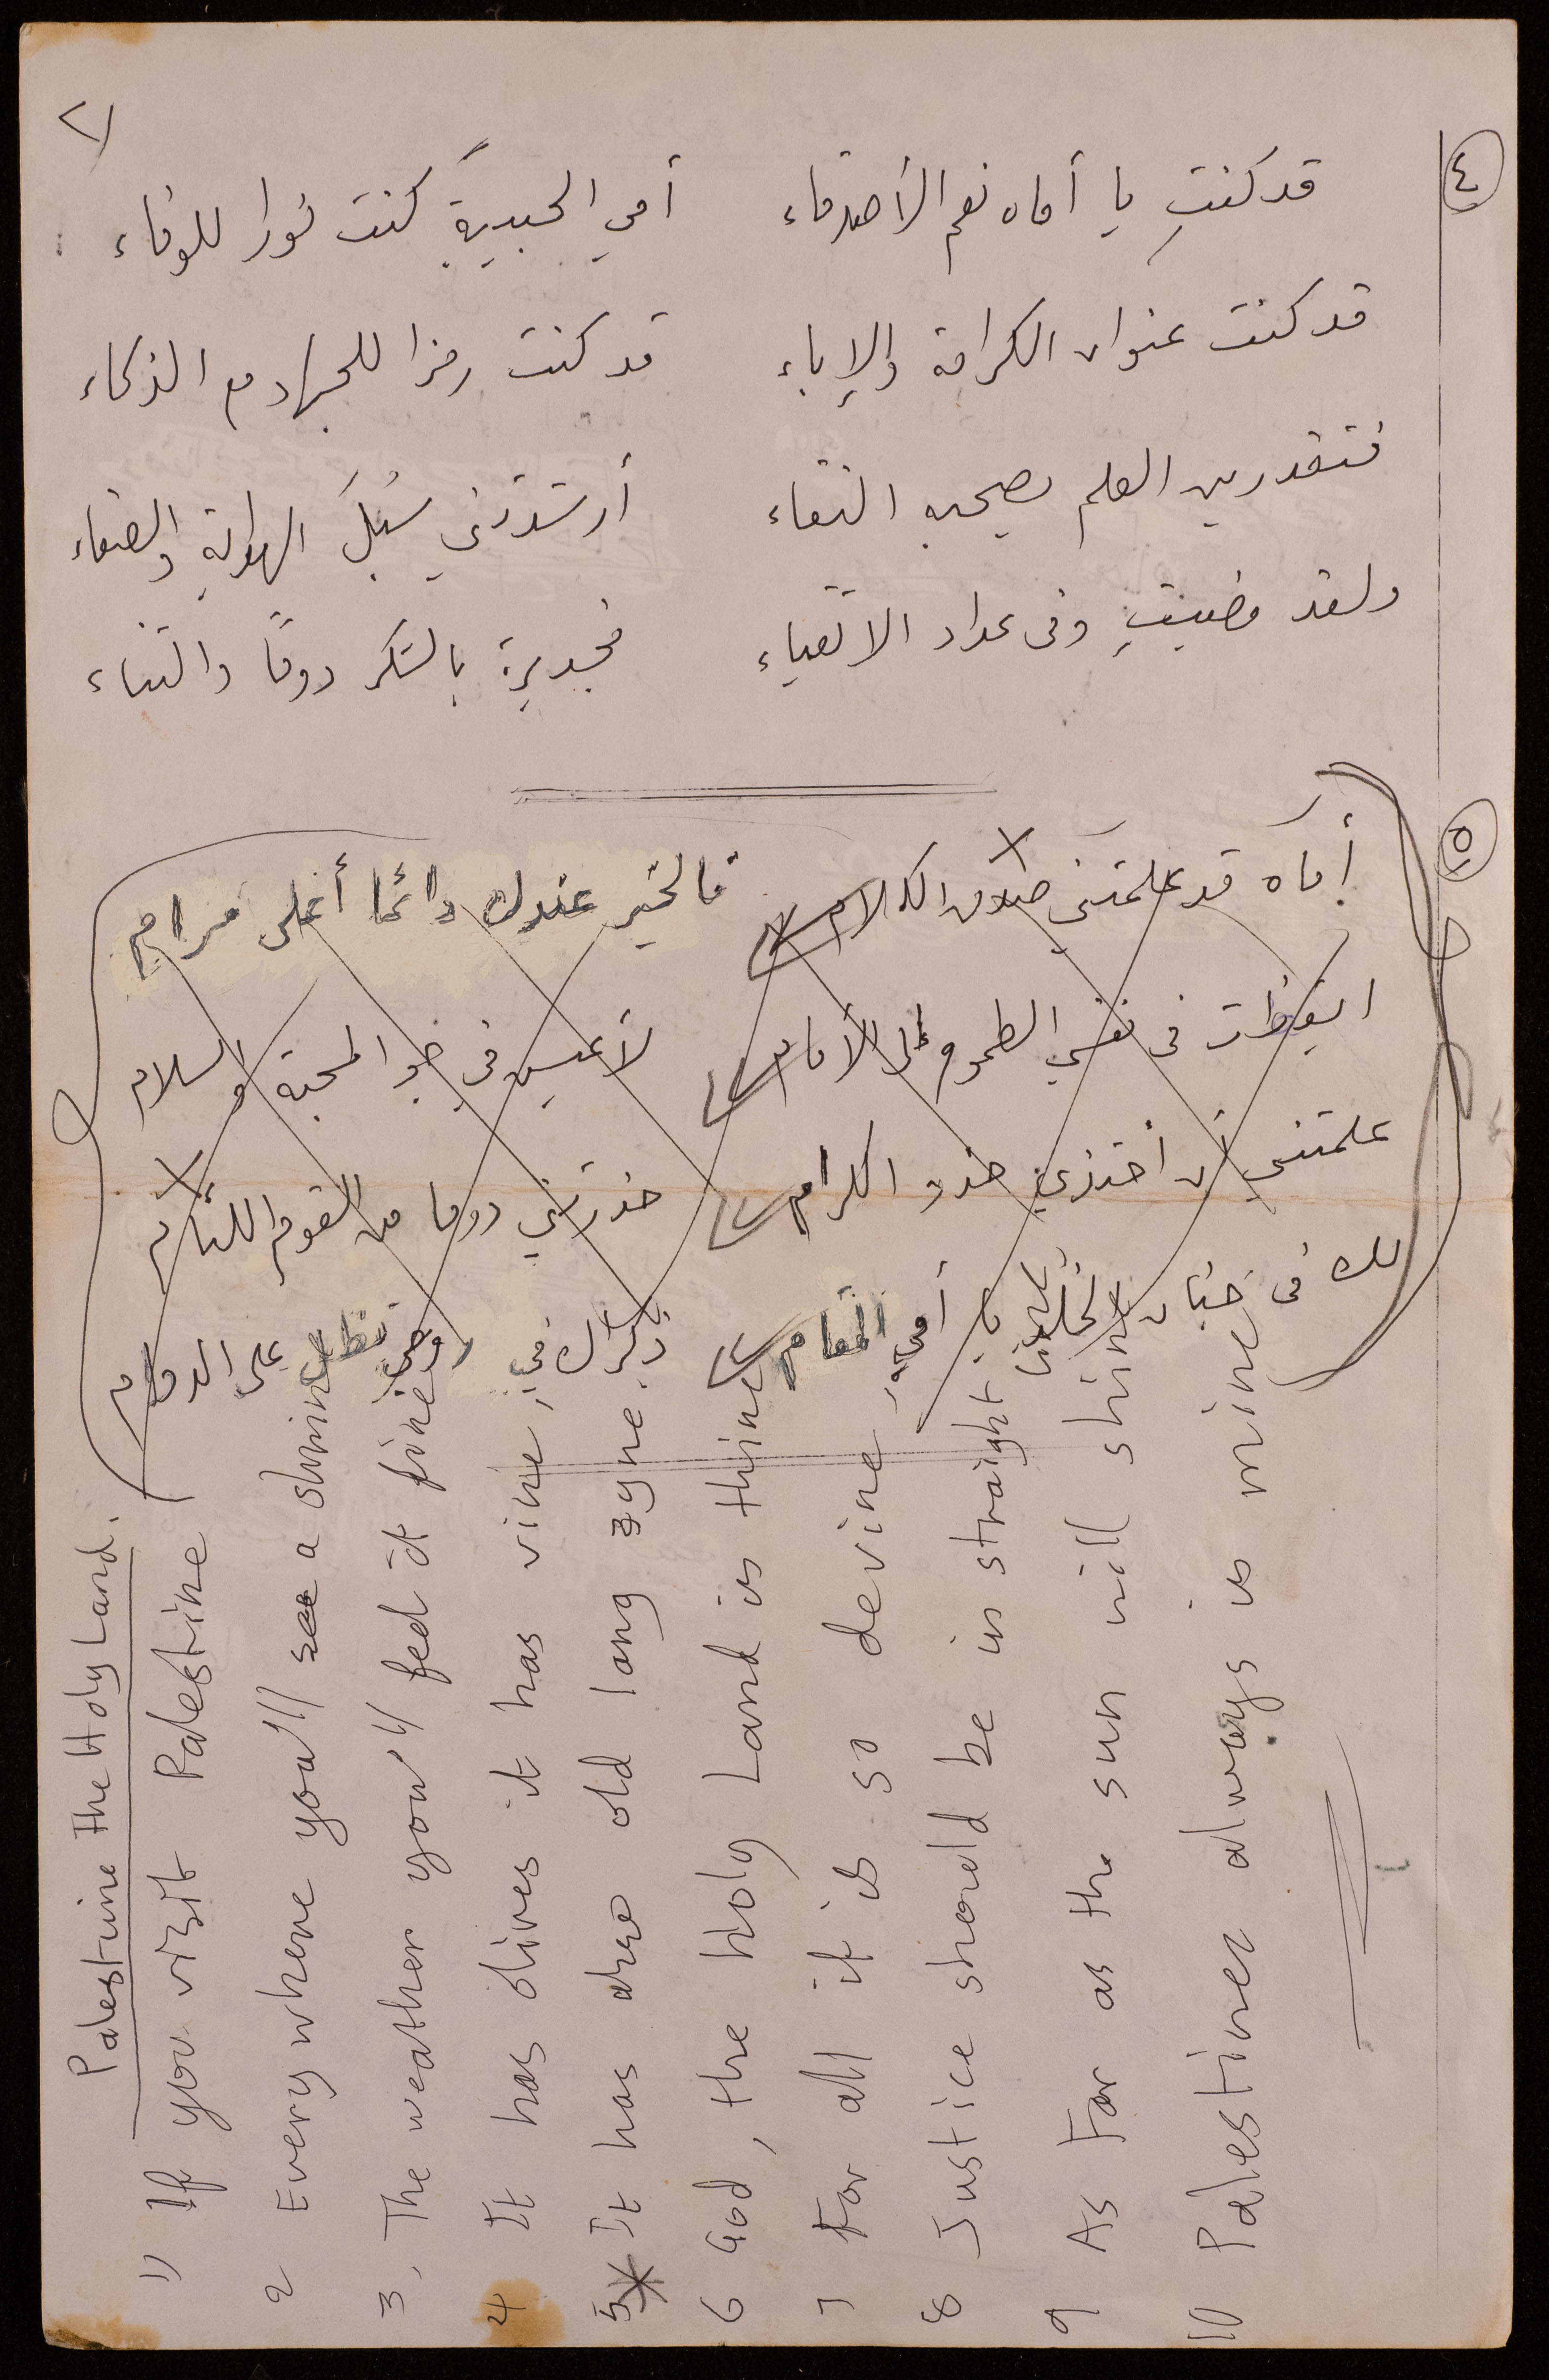 ٤
قد كنتِ يا أماه نعم الأصدقاء أمي الحبيبةَ كنت نورا للوفاء
قد كنت عنوان الكرامة والإباء قد كنت رمزا للجهاد مع الذكاء
فتقدرين العلم يصحبه النقاء أرشدتني سُبلَ الهداية والصفاء
ولقد مضيتِ وفى عداد الاتقياء فجديرة بالشكر دوماً والثناء
٥
أماه قد علمتنى صدق الكلام فالخير عندك دائما أغلى مرام
ايقظت فى نفسي الطموح إلى الأمام لأعيش فى جو المحبة والسلام
علمتني أن احتذي حذو الكرام حذرتني دوما من القوم اللئام
لك فى جنان الخلد يا أمي المقام ذكراك في روحي تظل على الدوام
Palestine the Holy Land.
1) If you visit Palestine
2 Every where you'll see a shrine
3, The weather you'll fed it fine
4 It has olives it has vine,
5 It has also old lang zyne.
6 God, the Holy Land is thine
7 For all it is so devine,
8 Justice should be in straight line
9 As Far as the sun will shine
10 Palestinee always is mine